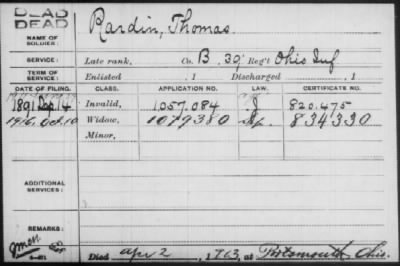 DEAD
DEAD
NAME OF SOLDIER:
Rardin, Thomas.
SERVICE:
Late rank, Co. B. 39' Reg't Ohio Inf
TERM OF SERVICE:
Enlisted , 1 Discharged , 1
DATE OF FILING. CLASS. APPLICATION NO. LAW. CERTIFICATE NO.
1891 Sep 14 Invalid, 1.057.084 J 820.475
1916. Oct. 10 Widow, 1079380 834330
Minor,
ADDITIONAL SERVICES:
REMARKS:
Died Apr 2, 1 , at Portsmouth, Ohio.